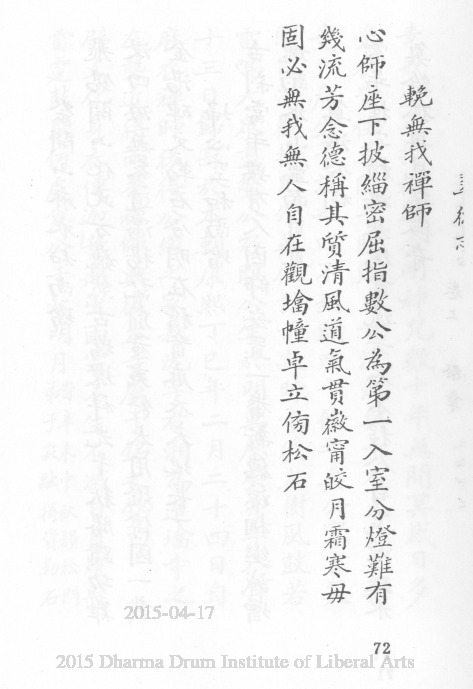 輓無我禪師
心師座下披緇密屈指數公為第一入室分燈難有
幾流芳念德稱其質清風道氣貫徽甯皎月霜寒毋
固必無我無人自在觀墖幢卓立傍松石
2015-04-17
72
2015 Dharma Drum Institute of Liberal Arts